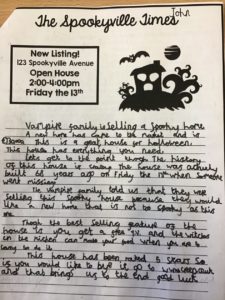 John
The Spookyville Times
New Listing!
123 Spookyville Avenue
Open House
2:00-4:00pm
Friday the 13th
Vampire family is selling a spooky home
A new home has came to the market and is
This is a great house for halloween.
This house has everything you need.
Lets get to the point though. The history
of this house is This house was actually
built 66 years ago on friday the 13th when someone
went missing.
The vampire family told us that they were
selling this spooky house because they would
like a new home that is not so spooky as this
one.
Though the best selling feature of the
house is you get a pet and the witches
in the kitchen can make your food when you are to
to do it.
This house has been rated 5 stars so
if you would like to buy it go to
and that brings us to the end good luck